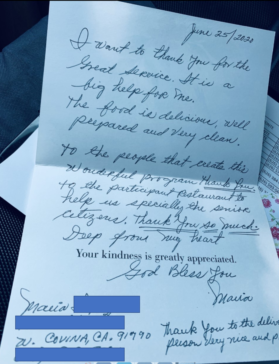 June 25/2020
I want to thank you for the
great service. It is a
big help for me.
The food is delicious, well
prepared and very clean.
to the people that create the
wonderful program thank you.
to the participant restaurant to
help us specially the senior
citizens. Thank you so much.
Deep from my heart
Your kindness is greatly appreciated.
God Bless You
Maria
Maria
W. COVINA, CA. 91790
Thank you to the
person very nice and